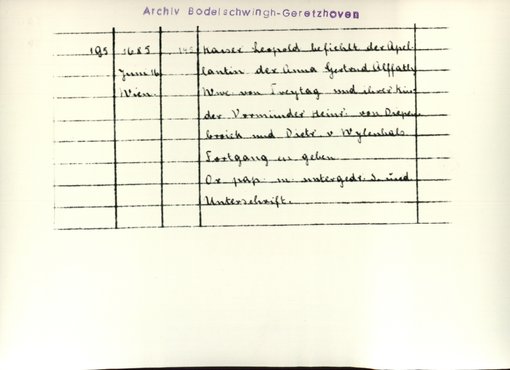 Archiv Bodelschwingh-Geretzhoven
195 1685 Kaiser Leopold befiehlt der Apel-
Juni 16 lantin der Anna Gertrud Alffath
Wien. Wwe von Freytag und ihrer Kin-
der Vormünder Heinr. von Diepen-
broick und Dietr. v Wylenhals
Fortgang zu geben
Or. pap. m. untergedr. S. und
Unterschrift.